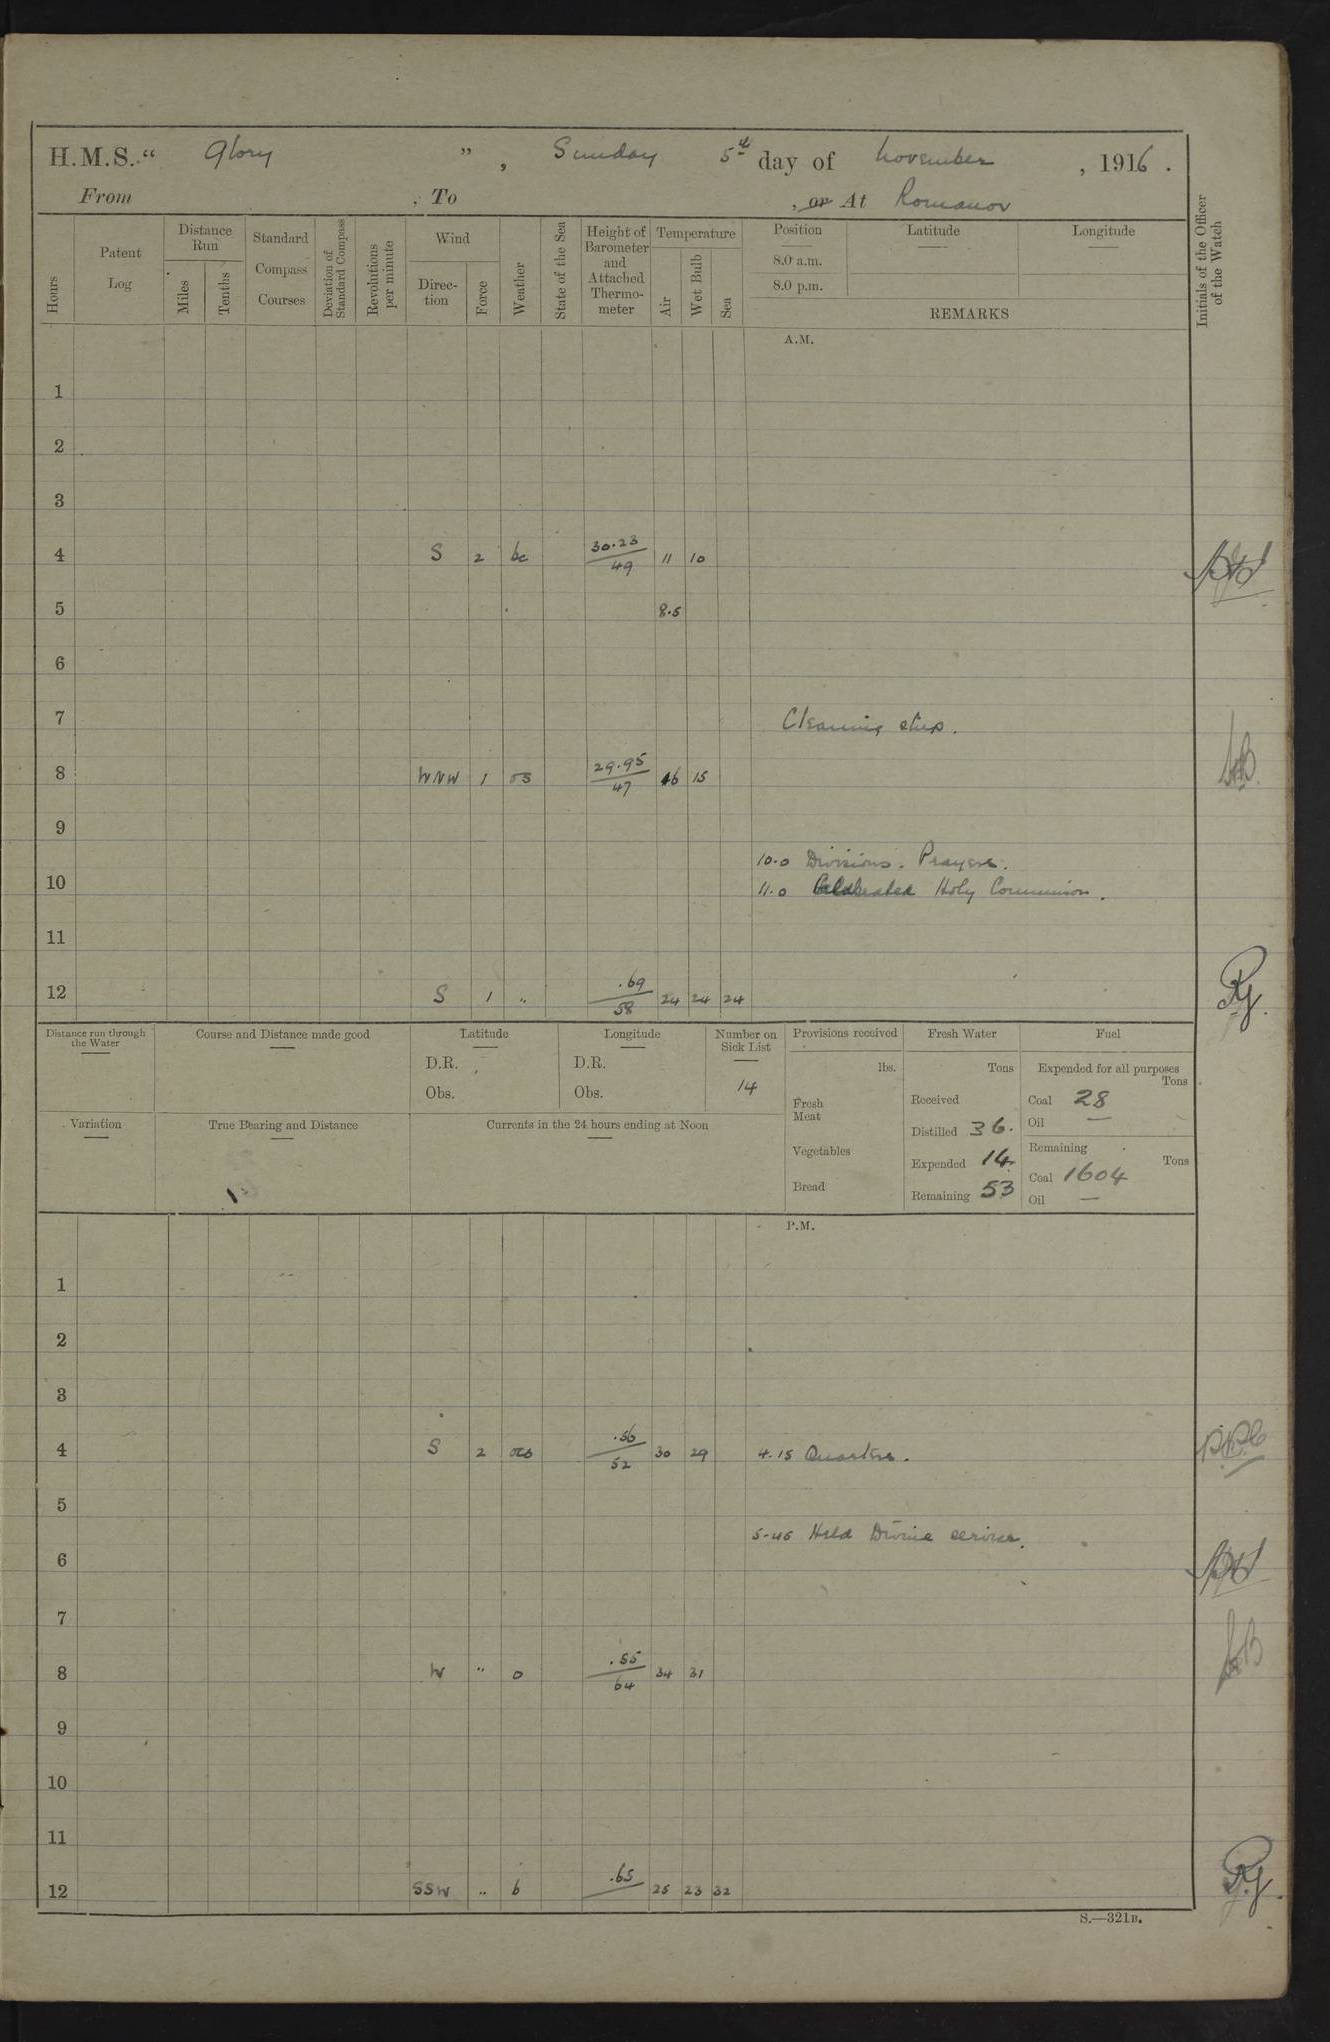 H.M.S. “ Glory ” , Sunday 5th day of November , 1916 .
From , To , or At Romanov
Hours
Patent Log
Distance Run
Miles
Tenths
Standard Compass Courses
Deviation of Standard Compass
Revolutions per minute
Wind
Direc-tion
Force
Weather
State of the Sea
Height of Barometer and Attached Thermo-meter
Temperature
Air
Wet Bulb
Sea
Position
8.0 a.m.
8.0 p.m.
Latitude
Longitude
REMARKS
Initials of the Officer of the Watch
A.M.
1
2
3
4 S 2 bc 30.23/49 11 10
5 8.5
6
7 Cleaning ship.
8 WNW 1 os 29.95/47 16 15
9
10.0 Divisions. Prayers.
10
11.0 Celebrated Holy Communion.
11
12 S 1 " .69/58 24 24 24
Distance run through the Water
Course and Distance made good
Latitude
D.R.
Obs.
Longitude
D.R.
Obs.
Number on Sick List
14
Provisions received
lbs.
Fresh Meat
Vegetables
Bread
Fresh Water
Tons
Received
Distilled 36.
Expended 14.
Remaining 53
Fuel
Expended for all purposes
Tons
Coal 28
Oil —
Remaining
Tons
Coal 1604
Oil —
Variation
True Bearing and Distance
Currents in the 24 hours ending at Noon
P.M.
1
2
3
4 S 2 ocs .56/52 30 29 4.15 Quarters.
5
5-45 Held Divine service.
6
7
8 W " o .55/64 34 31
9
10
11
12 SSW " b .65 25 23 32
S.—321B.